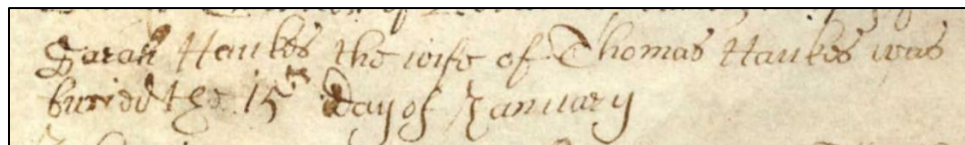 Sarah Haukes the wife of Thomas Haukes was
buried the 15th Day of January